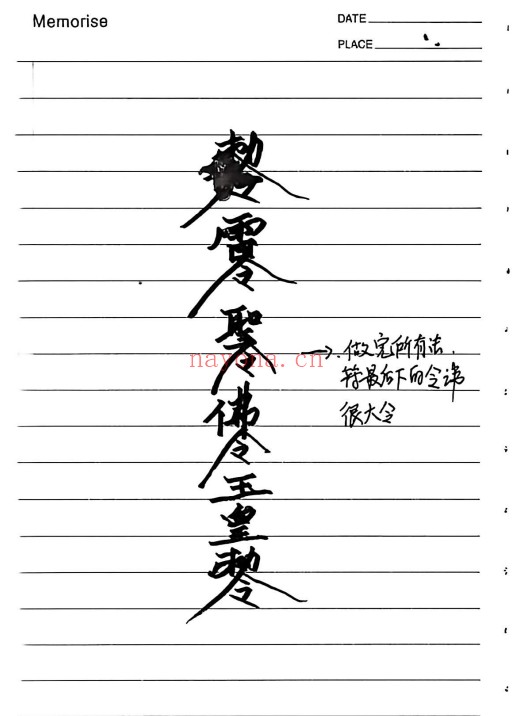 Memorise
DATE
PLACE
勅令
雷令
聖令
佛令
玉皇勅令
做完所有法，
最后下的令讳
很大令
nayona.cn